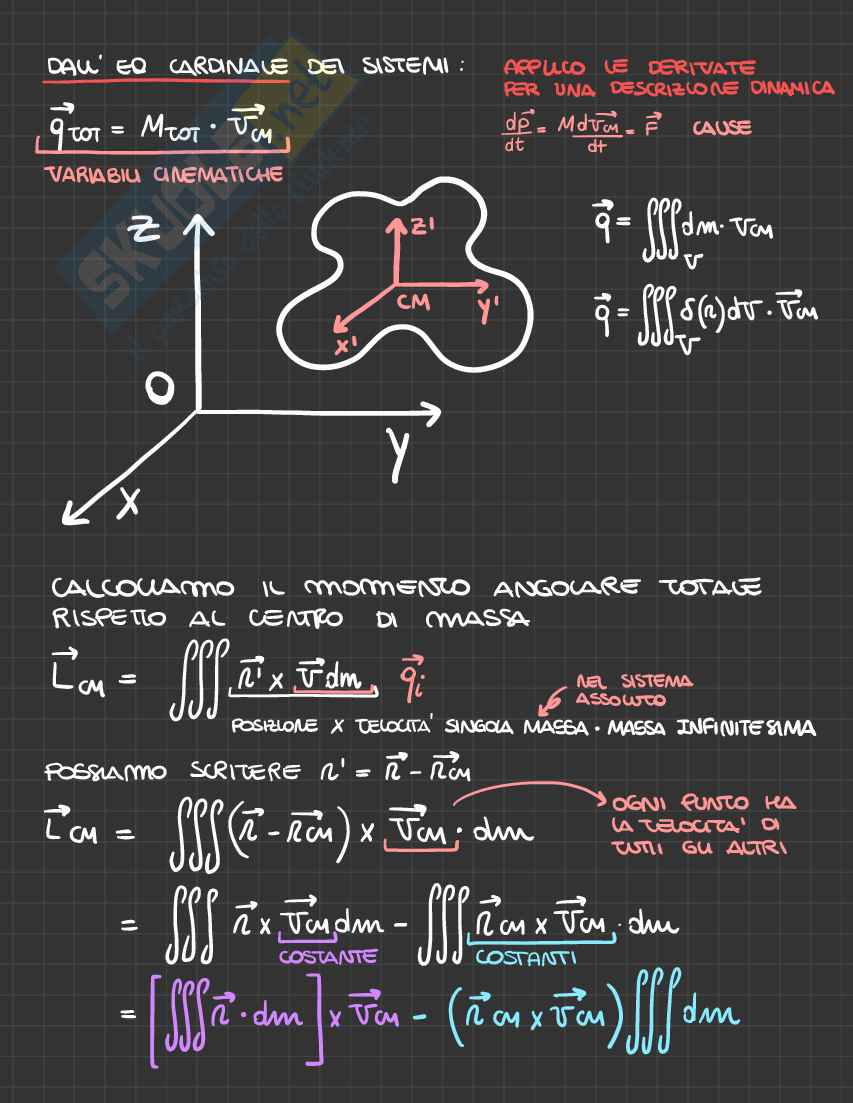 DALL' EQ CARDINALE DEI SISTEMI :
q⃗TOT = MTOT · v⃗CM
VARIABILI CINEMATICHE
APPLICO LE DERIVATE
PER UNA DESCRIZIONE DINAMICA
dp⃗/dt = M dv⃗CM/dt = F⃗ CAUSE
SKUOLA.net
Z
O
X
Y
Z'
CM
Y'
X'
q⃗ = ∭V dm · vCM
q⃗ = ∭V δ(r) dV · v⃗CM
CALCOLIAMO IL MOMENTO ANGOLARE TOTALE
RISPETTO AL CENTRO DI MASSA
L⃗CM = ∭ r⃗' × v⃗ dm q⃗i
NEL SISTEMA
ASSOLUTO
POSIZIONE X VELOCITA' SINGOLA MASSA · MASSA INFINITESIMA
POSSIAMO SCRIVERE r' = r⃗ - r⃗CM
L⃗CM = ∭(r⃗ - r⃗CM) × v⃗CM · dm
OGNI PUNTO HA
LA VELOCITA' DI
TUTTI GLI ALTRI
= ∭ r⃗ × v⃗CM dm - ∭ r⃗CM × v⃗CM · dm
COSTANTE COSTANTI
= [∭ r⃗ · dm] × v⃗CM - (r⃗CM × v⃗CM) ∭ dm